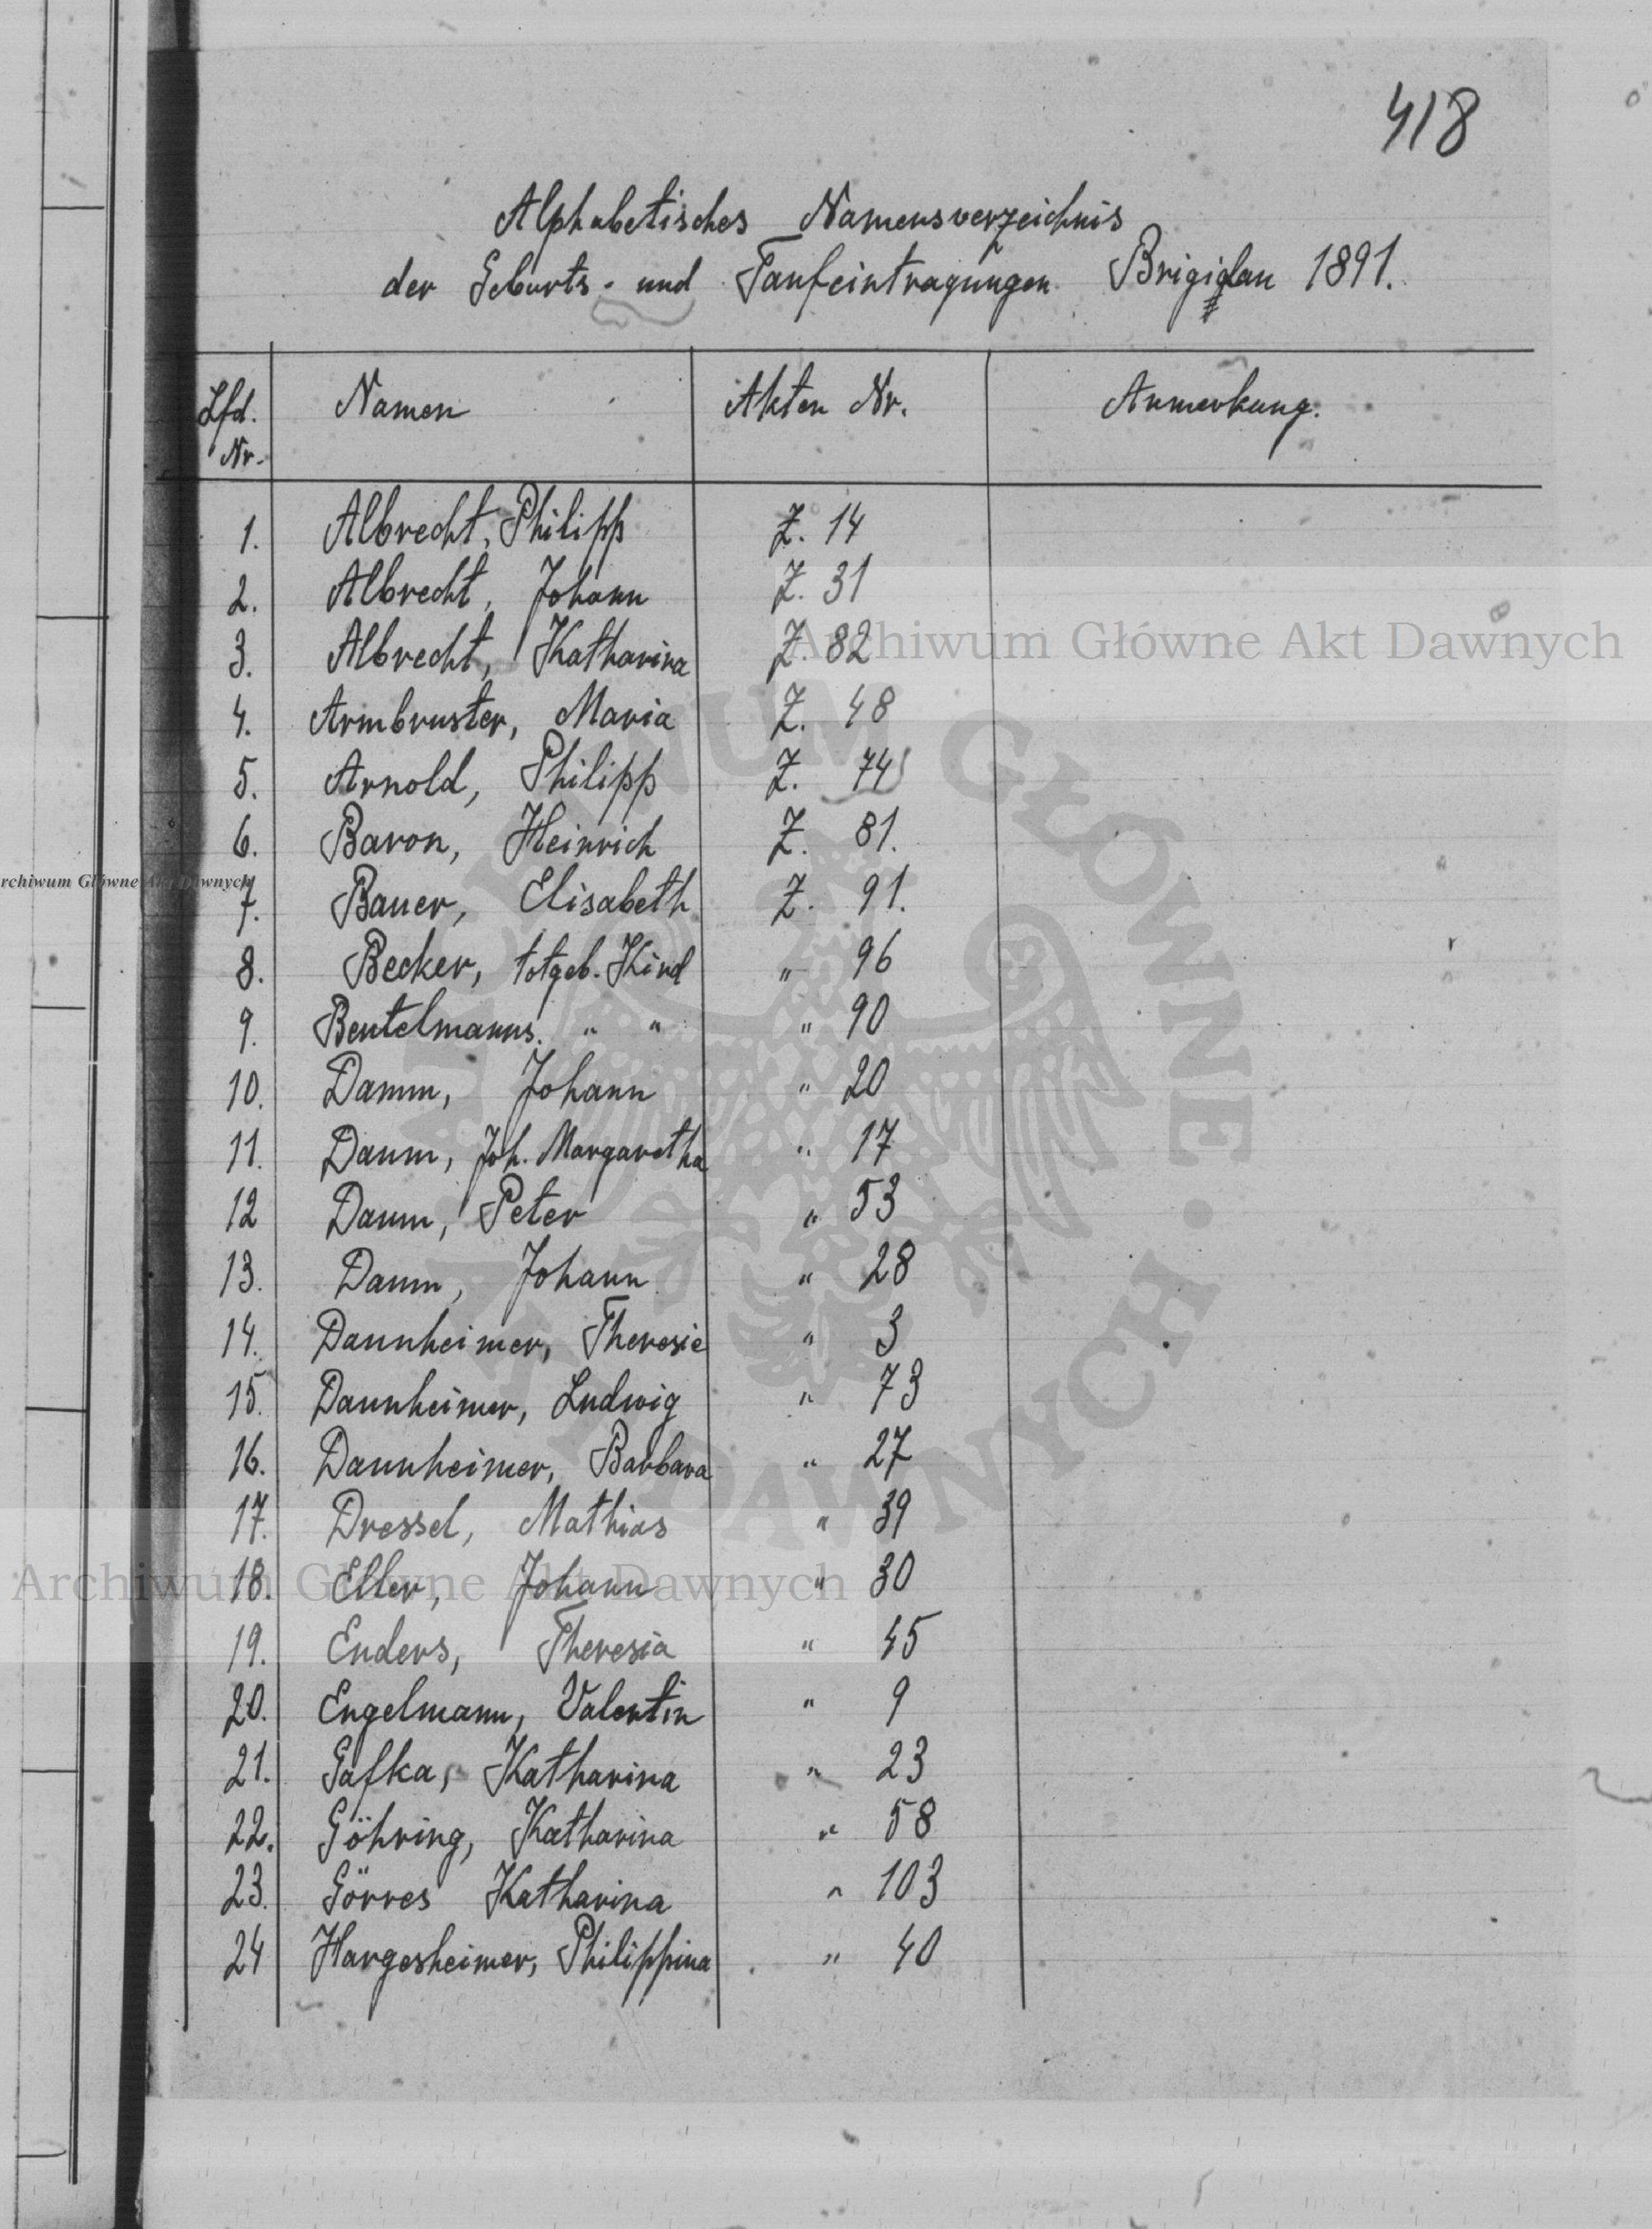 418
Alphabetisches Namensverzeichnis
der Geburts- und Taufeintragungen Brigidau 1891.
Lfd. Nr. Namen Akten Nr. Anmerkung.
1. Albrecht, Philipp Z. 14
2. Albrecht, Johann Z. 31
3. Albrecht, Katharina Z. 82
4. Armbruster, Maria Z. 48
5. Arnold, Philipp Z. 74
6. Baron, Heinrich Z. 81.
7. Bauer, Elisabeth Z. 91.
8. Becker, totgeb. Kind " 96
9. Beutelmanns. " " " 90
10. Damm, Johann " 20
11. Daum, Joh. Margaretha " 17
12 Daum, Peter " 53
13. Daum, Johann " 28
14. Dannheimer, Theresie " 3
15. Dannheimer, Ludwig " 73
16. Dannheimer, Barbara " 27
17. Dressel, Mathias " 39
18. Eller, Johann " 30
19. Enders, Theresia " 45
20. Engelmann, Valentin " 9
21. Gafka, Katharina " 23
22. Göhring, Katharina " 58
23. Görres Katharina " 103
24 Hargesheimer, Philippina " 40
Archiwum Główne Akt Dawnych
rchiwum Główne Akt Dawnych
Archiwum Główne Akt Dawnych